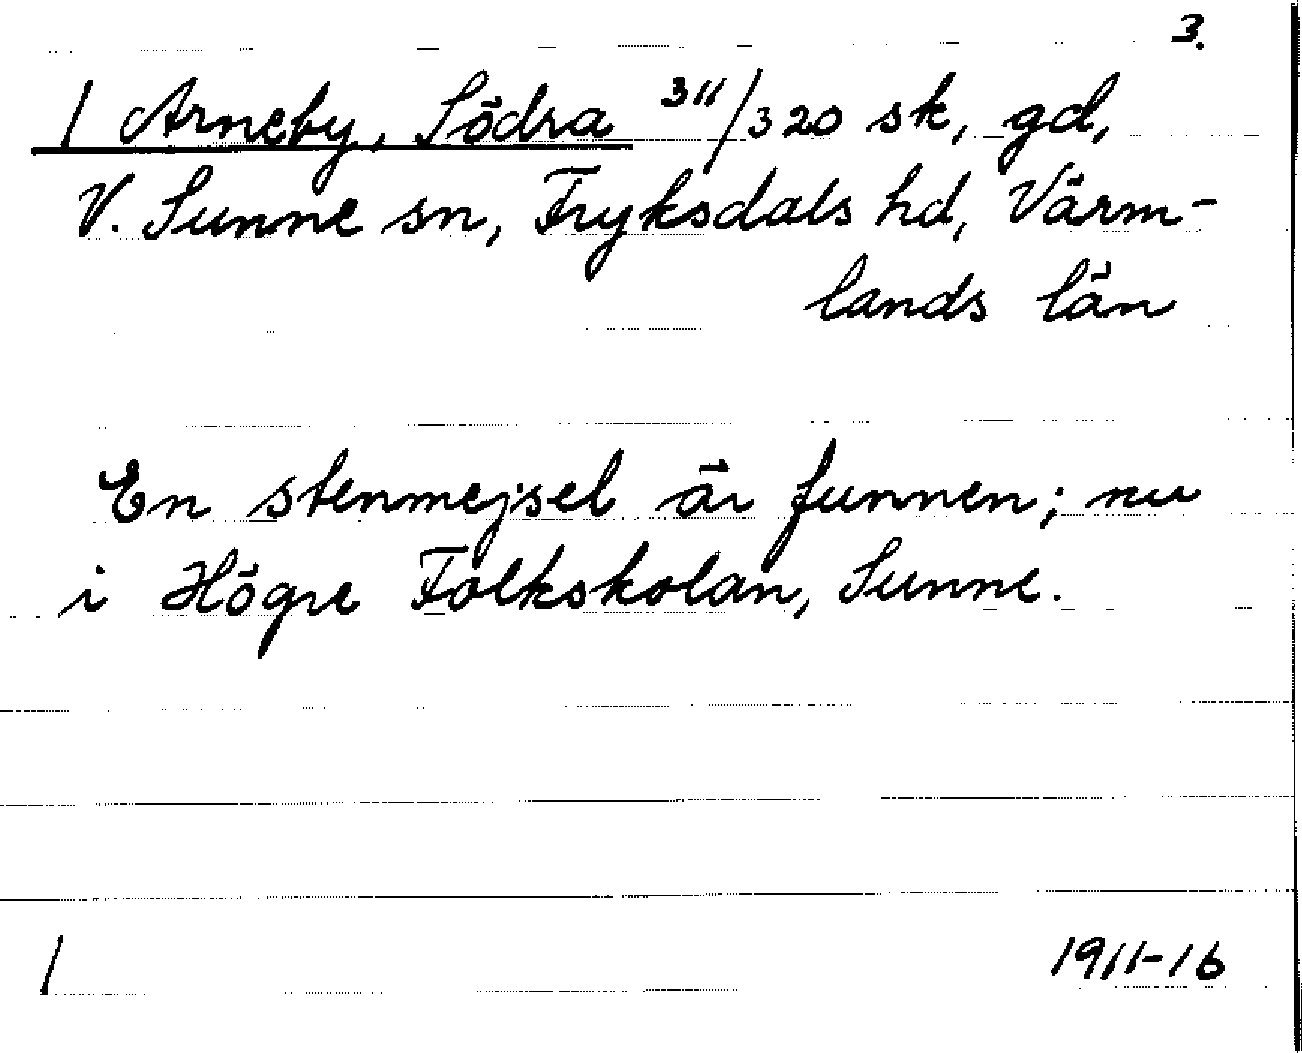 3.
/ Arneby, Södra 311/320 sk, gd,
V. Sunne sn, Fryksdals hd, Värm-
lands län
En stenmejsel är funnen; nu
i Högre Folkskolan, Sunne.
/ 1911-16